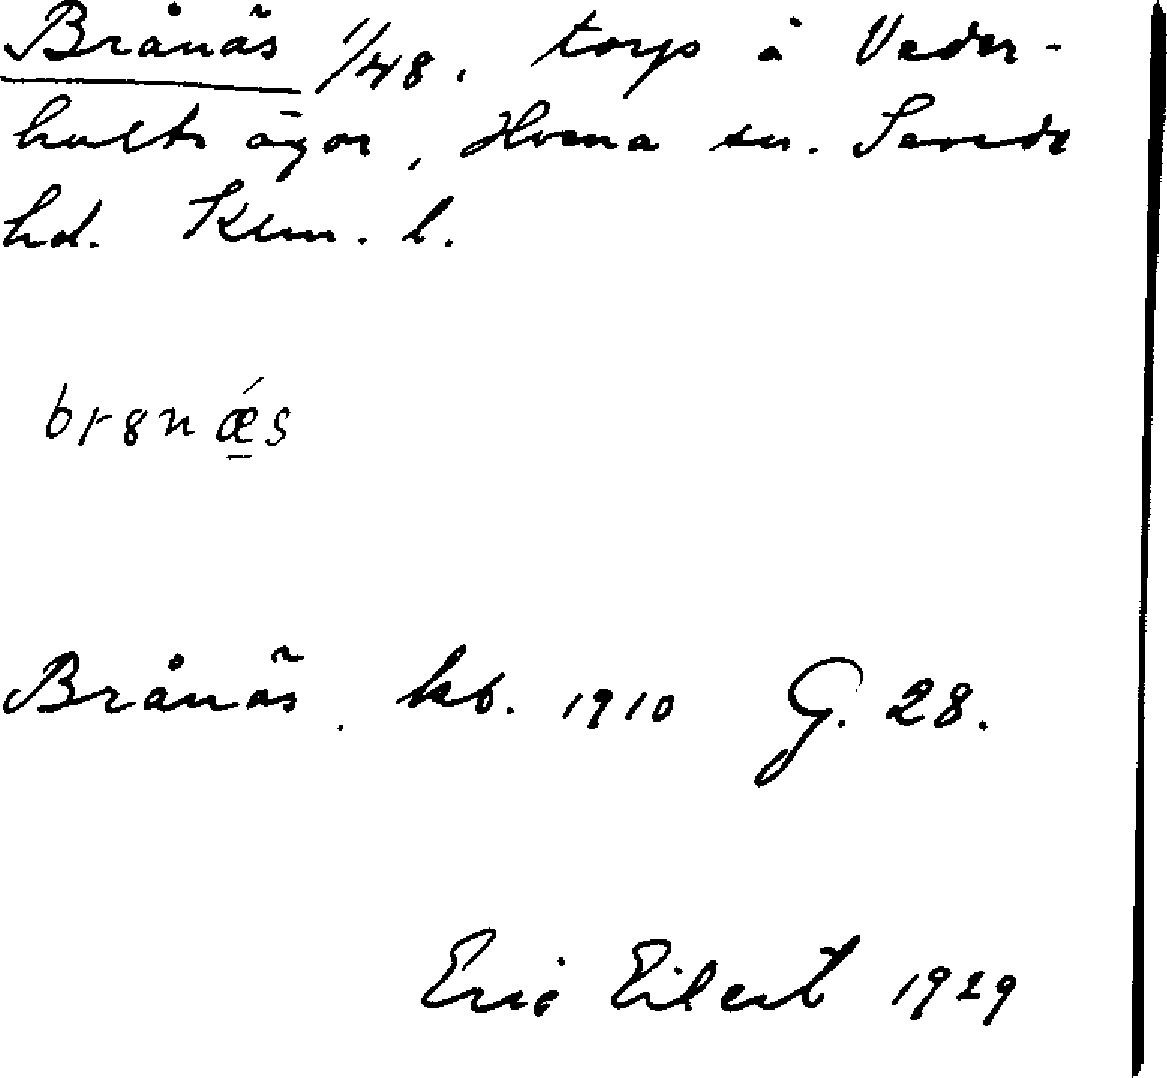 Brånäs 1/48. torp å Veder-
hults ägor, Hvena sn. Sevede
hd. Klm. l.
brȣnǽs
Brånäs. kb. 1910 G. 28.
Eric Eilert 1929